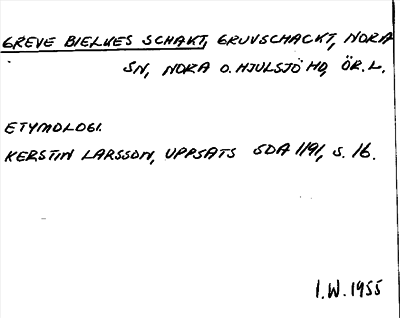 GREVE BIELKES SCHAKT, GRUVSCHACKT, NORA
SN, NORA O. HJULSJÖ HD, ÖR. L.
ETYMOLOGI.
KERSTIN LARSSON, UPPSATS SDA 1191, S. 16.
I.W. 1955